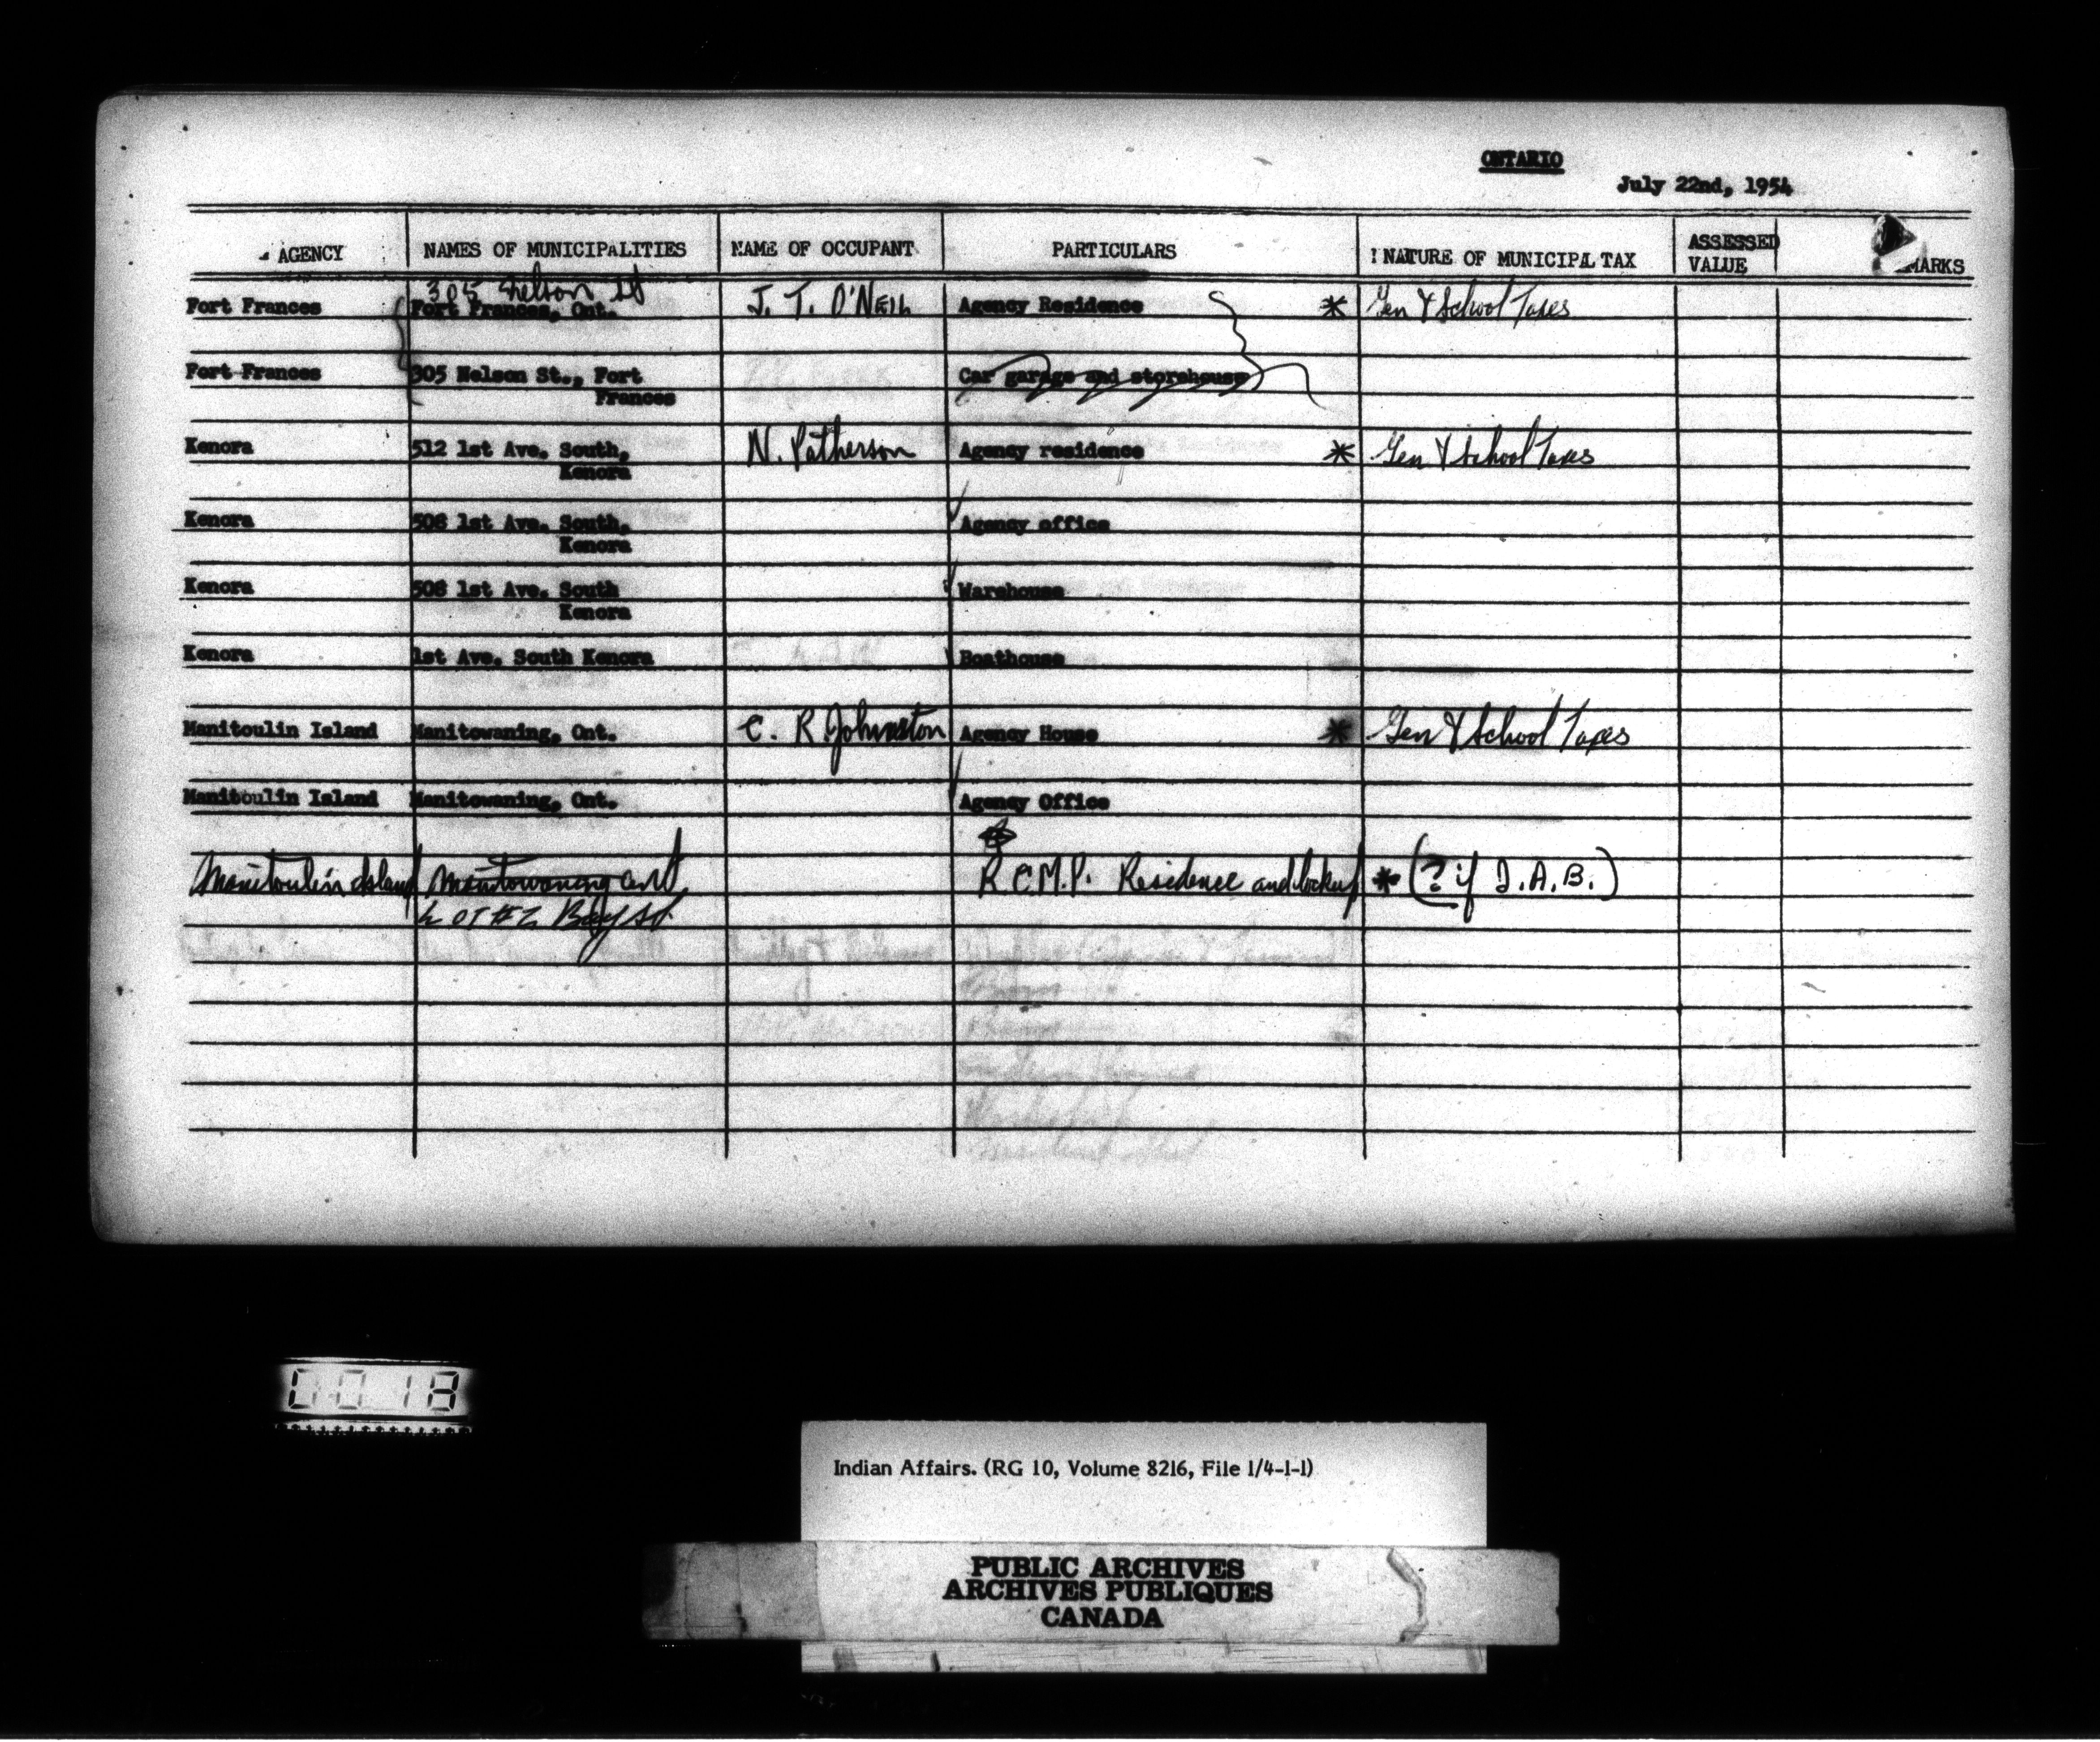 ONTARIO
July 22nd, 1954
AGENCY NAMES OF MUNICIPALITIES NAME OF OCCUPANT PARTICULARS NATURE OF MUNICIPAL TAX ASSESSED VALUE MARKS
305 Nelson St
Fort Frances Fort Frances, Ont. J. T. O'Neil Agency Residence * Gen & School Taxes
Fort Frances 305 Nelson St., Fort Car garage and storehouse
Frances
Kenora 512 1st Ave. South, N. Patherson Agency residence * Gen & School Taxes
Kenora
Kenora 508 1st Ave. South, Agency office
Kenora
Kenora 508 1st Ave. South Warehouse
Kenora
Kenora 1st Ave. South Kenora Boathouse
Manitoulin Island Manitowaning, Ont. C. R Johnston Agency House * Gen & School Taxes
Manitoulin Island Manitowaning, Ont. Agency Office
Manitoulin Island Manitowaning Ont R.C.M.P. Residence and lockup * (? if I.A.B.)
Lot #2 Bay St.
0018
Indian Affairs. (RG 10, Volume 8216, File 1/4-1-1)
PUBLIC ARCHIVES
ARCHIVES PUBLIQUES
CANADA